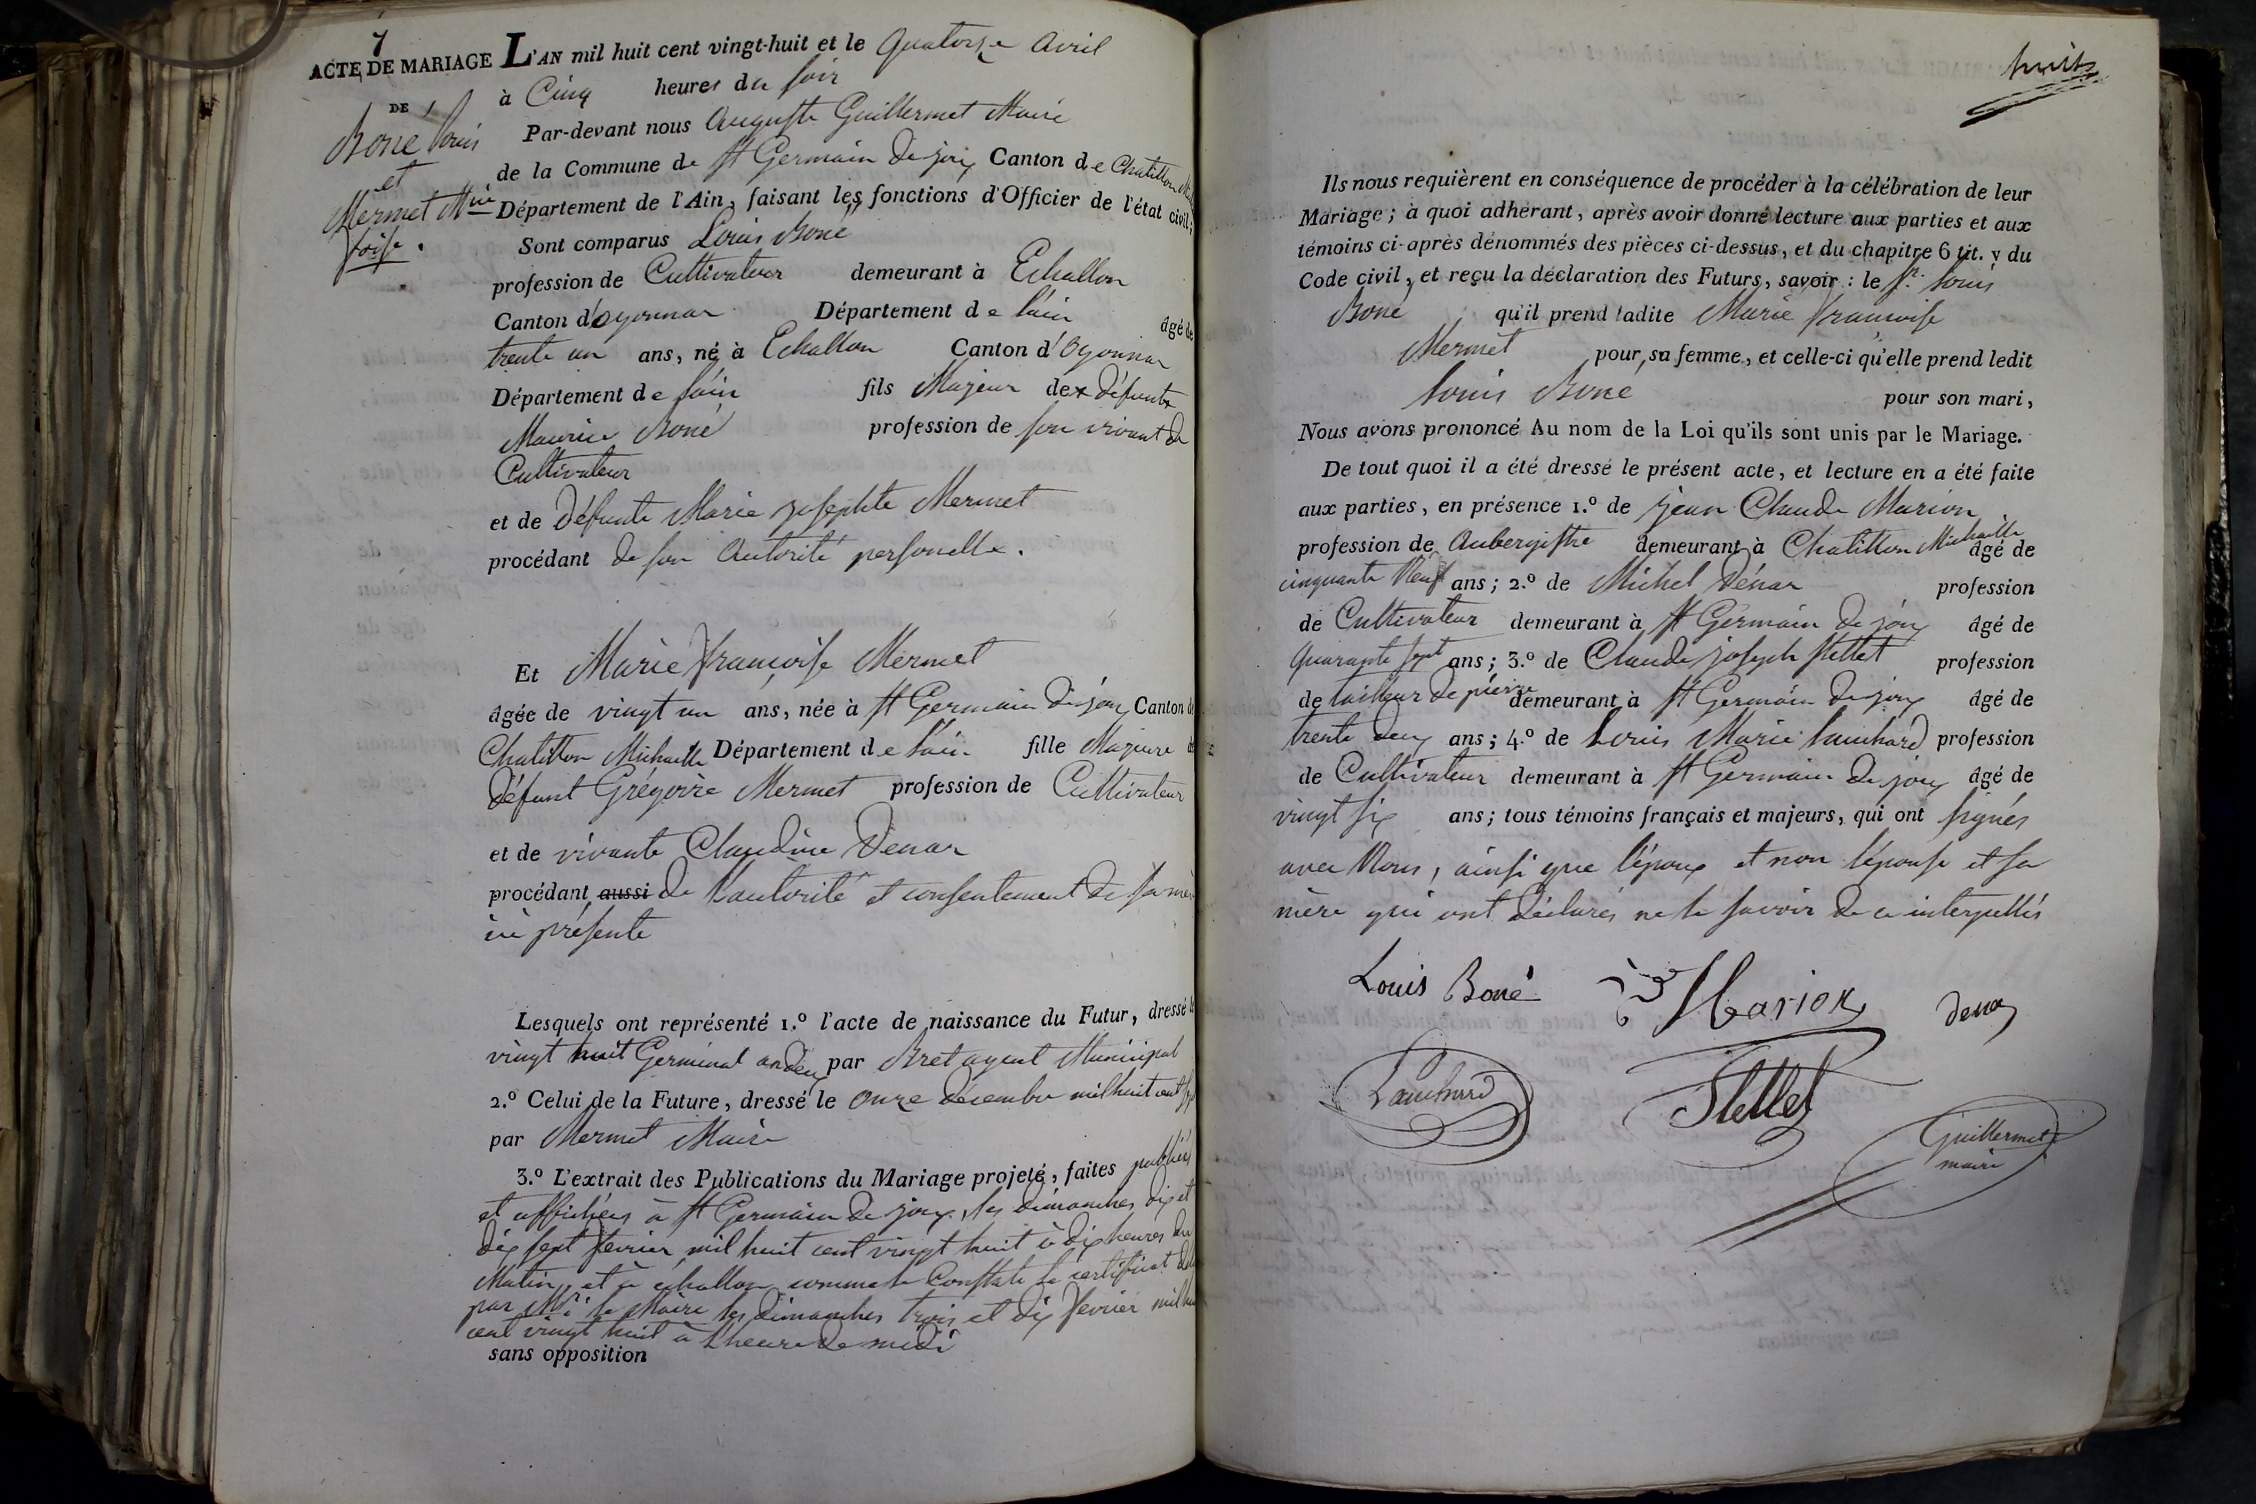 7
ACTE DE MARIAGE L'AN mil huit cent vingt-huit et le quatorze avril
DE
Boné Louis
et
Mermet Mie
foise.
à Cinq heures du soir
Par-devant nous Auguste Guillermet Maire
de la Commune de St Germain de joux Canton de Chatillon
Département de l'Ain, faisant les fonctions d'Officier de l'état civil;
Sont comparus Louis Boné
profession de Cultivateur demeurant à Echallon
Canton d'oyonnax Département de l'ain âgé de
trente un ans, né à Echallon Canton d'Oyonnax
Département de l'ain fils Majeur dex défunts
Maurice Boné profession de son vivant de
Cultivateur
et de défunte Marie josephte Mermet
procédant de son autorité personelle.
Et Marie françoise Mermet
âgée de vingt un ans, née à St Germain de joux Canton de
Chatillon Michaille Département de l'ain fille Majeure de
défunt Grégoire Mermet profession de Cultivateur
et de vivante Claudine Denar
procédant aussi de l'autorité et consentement de sa mère
ici présente
Lesquels ont représenté 1.° l'acte de naissance du Futur, dressé le
vingt huit Germinal an deux par Bret agent Municipal
2.° Celui de la Future, dressé le onze décembre mil huit cent
par Mermet Maire
3.° L'extrait des Publications du Mariage projeté, faites publiées
et affichées à St Germain de joux, les dimanches dix et
dix sept fevrier mil huit cent vingt huit à dix heures du
Matin, et à échallon comme le Constate le certificat
par Mr. le Maire les dimanches trois et dix fevrier mil huit
cent vingt huit à l'heure de midi
sans opposition
huit
Ils nous requièrent en conséquence de procéder à la célébration de leur
Mariage; à quoi adhérant, après avoir donné lecture aux parties et aux
témoins ci-après dénommés des pièces ci-dessus, et du chapitre 6 tit. v du
Code civil, et reçu la déclaration des Futurs, savoir: le Sr. Louis
Boné qu'il prend ladite Marie françoise
Mermet pour sa femme, et celle-ci qu'elle prend ledit
Louis Boné pour son mari,
Nous avons prononcé Au nom de la Loi qu'ils sont unis par le Mariage.
De tout quoi il a été dressé le présent acte, et lecture en a été faite
aux parties, en présence 1.° de jean Claude Marion
profession de Aubergiste demeurant à Chatillon Michaille âgé de
cinquante Neuf ans; 2.° de Michel Dénar profession
de Cultivateur demeurant à St Germain de joux âgé de
quarante sept ans; 3.° de Claude joseph Stellet profession
de tailleur de pierre demeurant à St Germain de joux âgé de
trente deux ans; 4.° de Louis Marie Lanchard profession
de Cultivateur demeurant à St Germain de joux âgé de
vingt six ans; tous témoins français et majeurs, qui ont signés
avec Nous, ainsi que l'époux et non l'épouse et sa
mère qui ont déclarés ne le savoir de ce interpellés
Louis Boné Marion Denar
Lanchard Stellet
Guillermet
maire